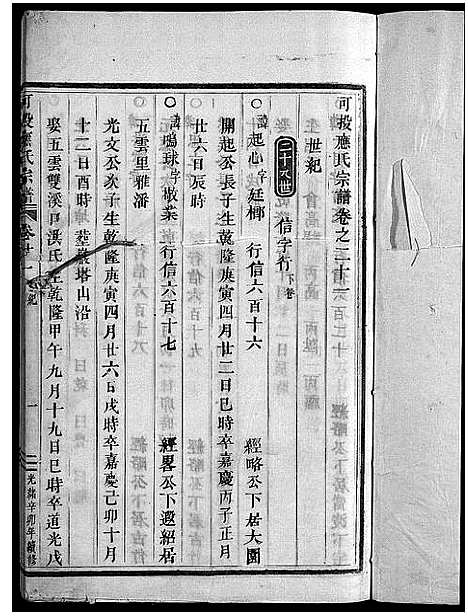 可投應氏宗譜卷之二十一
世紀
二十八世 信字行 下卷
諱起心字廷櫛 行信六百十六 經略公下居大園
開起公長子生乾隆庚寅四月廿二日巳時卒嘉慶丙子正月
廿六日辰時
諱鳴球字敬業 行信六百十七 經畧公下遯紹居
五雲里雅潘
光文公次子生乾隆庚寅四月廿六日戌時卒嘉慶己卯十月
十二日酉時 塟巖塔山沿
娶五雲雙溪口洪氏生乾隆甲午九月十九日巳時卒道光戌
可投應氏宗譜 卷廿一 紀 一 光緒辛卯年續修